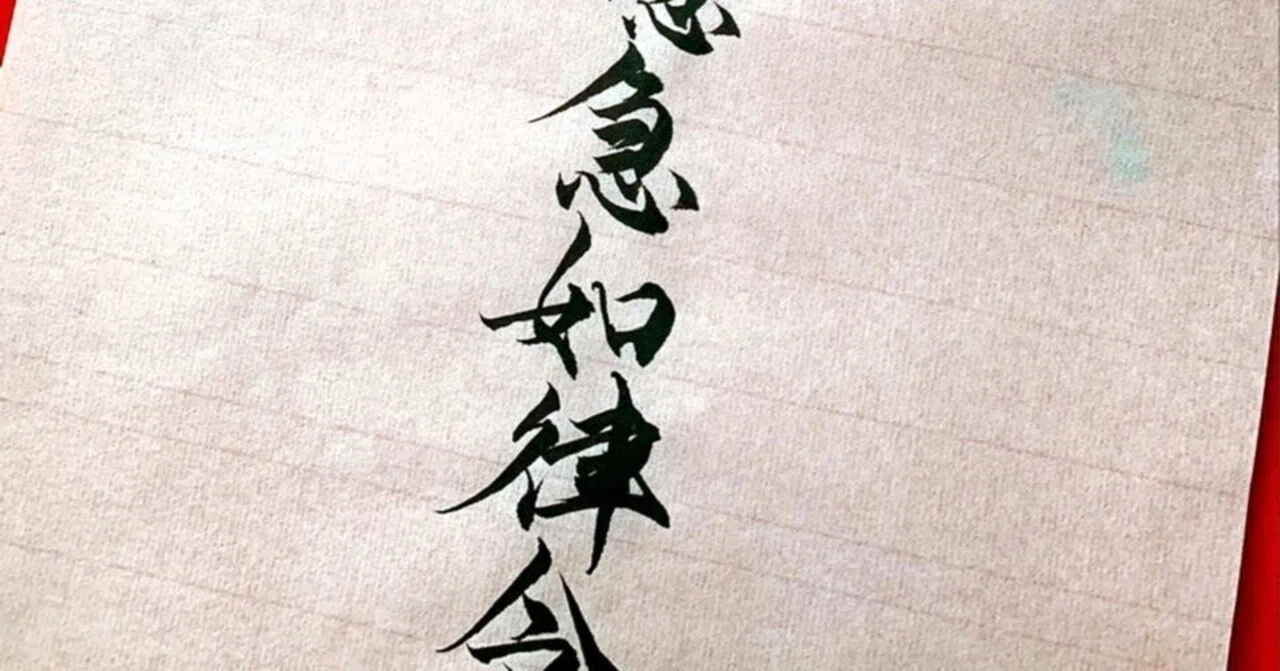 急急如律令